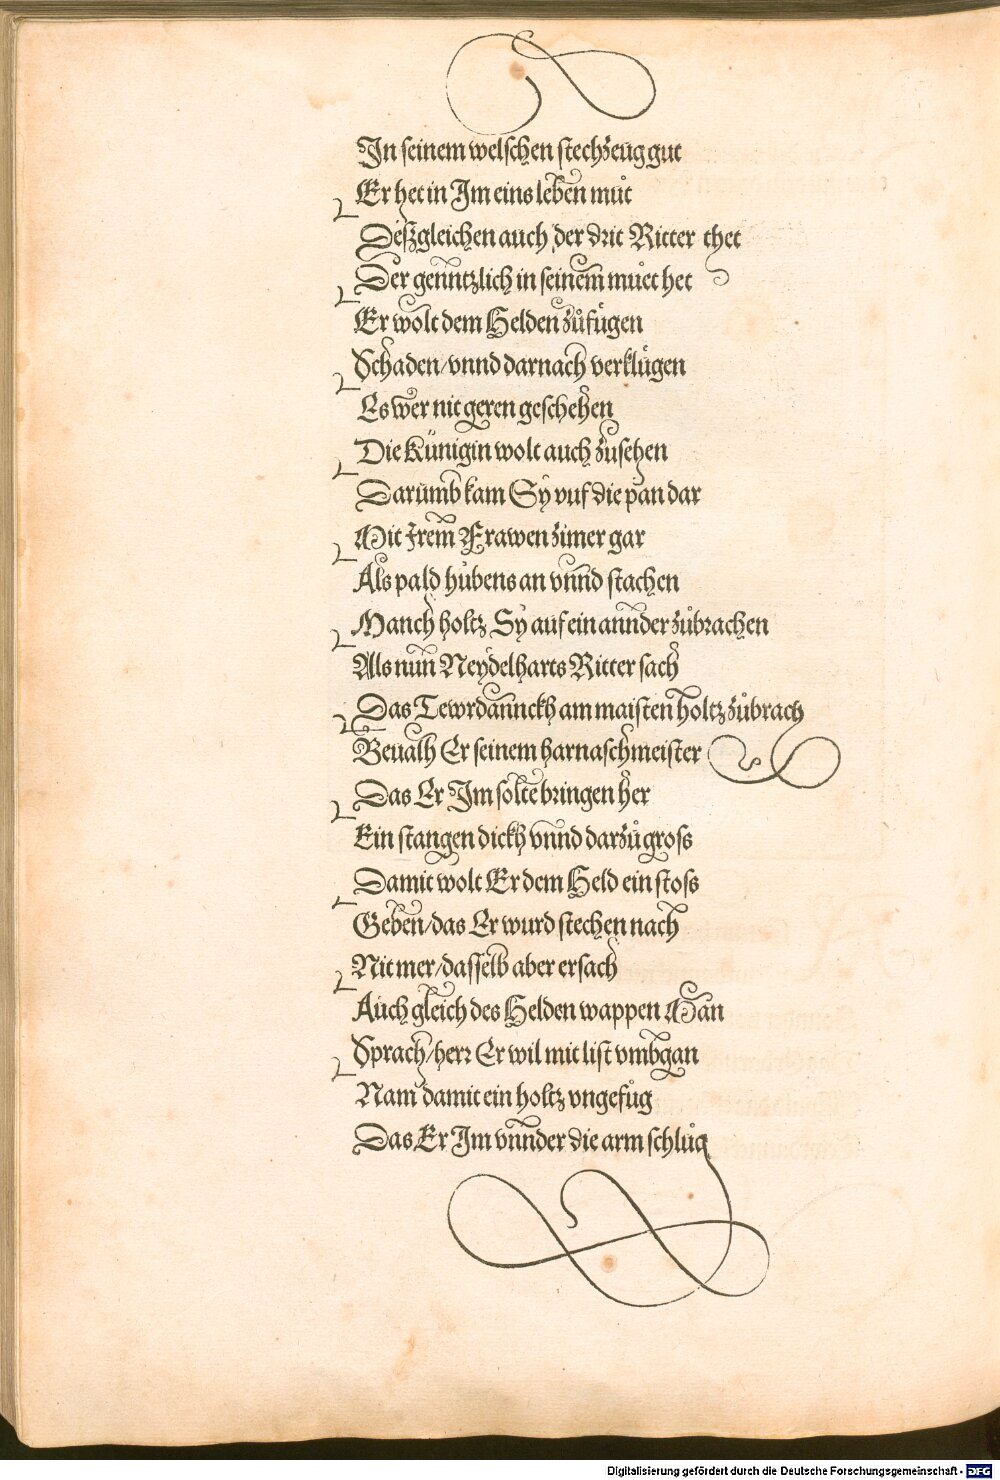 In seinem welschen stechzeug gut
Er het in Im eins leben můt
Deßgleichen auch der drit Ritter thet
Der genntzlich in seinem můet het
Er wolt dem Helden zůfügen
Schaden/vnnd darnach verklügen
Es wer nit geren geschehen
Die Künigin wolt auch zusehen
Darumb kam Sy vuf die pan dar
Mit Irem Frawen zimer gar
Als pald hůbens an vnnd stachen
Manch holtz Sy auf ein annder zůbrachen
Als nun Neydelharts Ritter sach
Das Tewrdannckh am maisten holtz zůbrach
Beualh Er seinem harnaschmeister
Das Er Im solte bringen her
Ein stangen dickh vnnd darzů gross
Damit wolt Er dem Held ein stoss
Geben/das Er wurd stechen nach
Nit mer/dasselb aber ersach
Auch gleich des Helden wappen Man
Sprach/herr Er wil mit list vmbgan
Nam damit ein holtz vngefůg
Das Er Im vnnder die arm schlůg
Digitalisierung gefördert durch die Deutsche Forschungsgemeinschaft - DFG